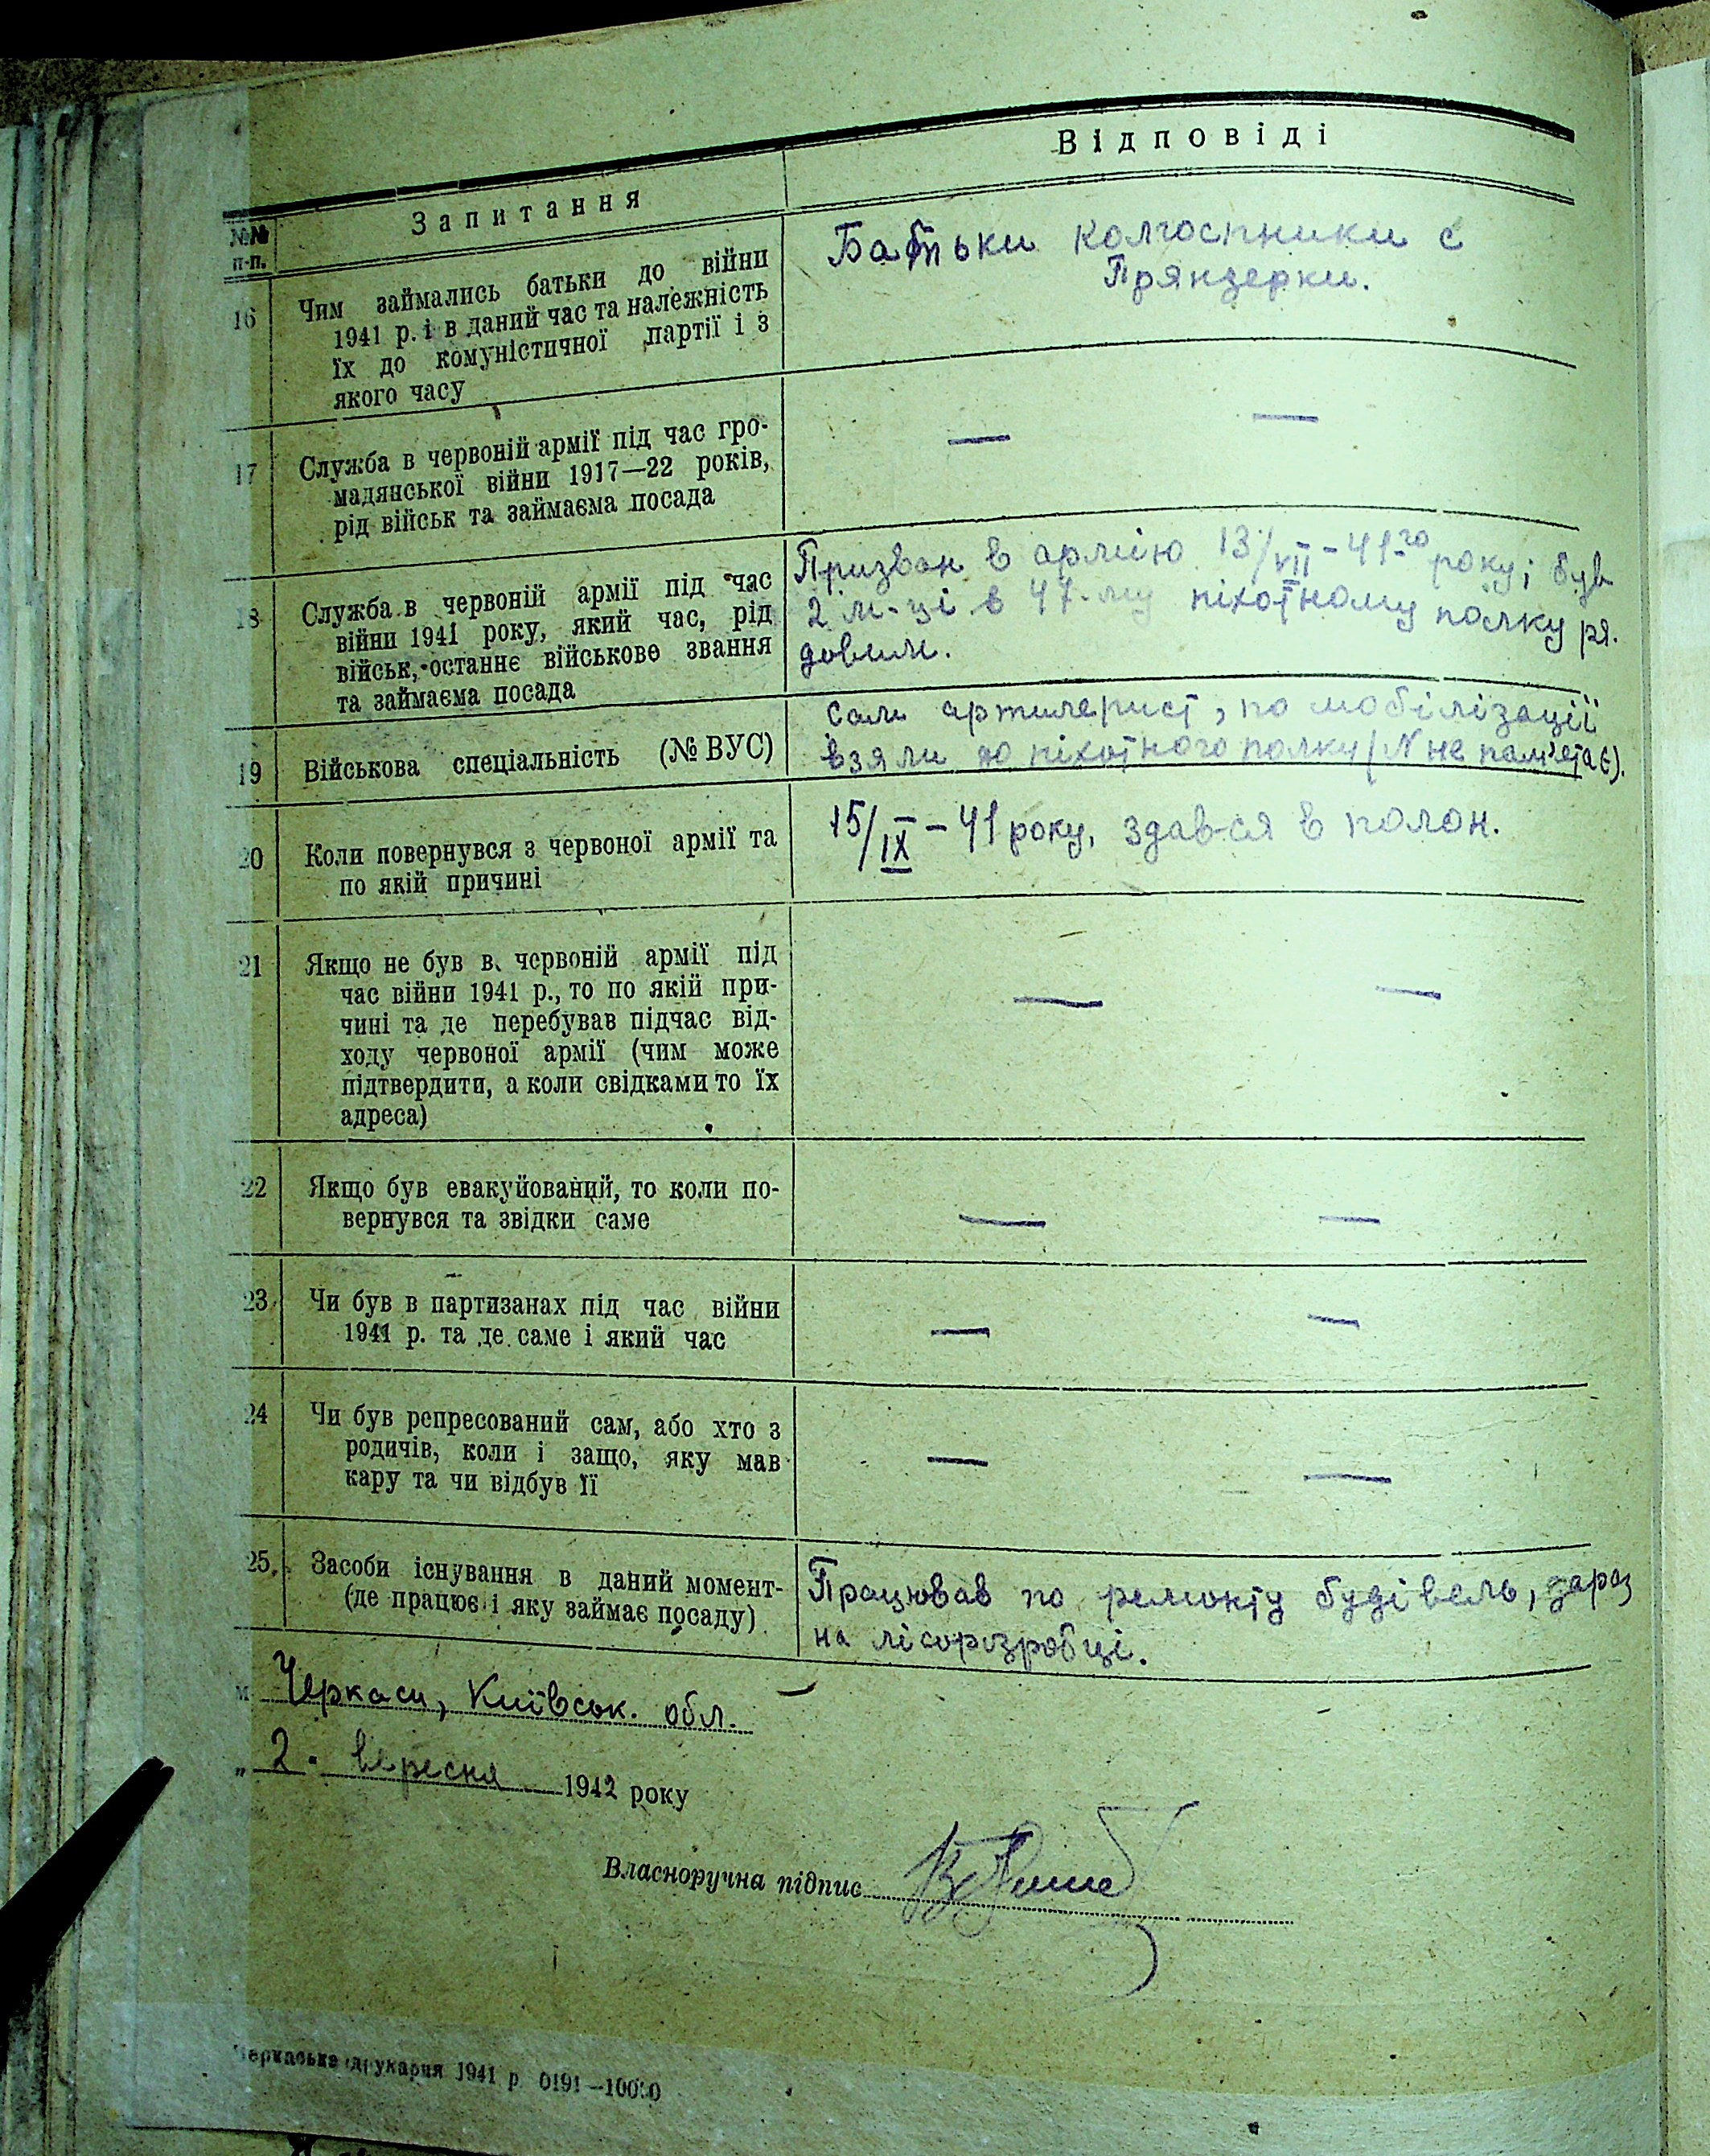 Відповіді
Запитання
№№
п-п.
16
Чим займались батьки до війни
1941 р. і в даний час та належність
їх до комуністичної партії і з
якого часу
Батьки колгоспники с
Пряндерки.
17
Служба в червоній армії під час гро-
мадянської війни 1917—22 років,
рід військ та займаєма посада
— —
18
Служба в червоній армії під час
війни 1941 року, який час, рід
військ, останнє військове звання
та займаєма посада
Призван в армію 13/VII – 41-го року; був
2 м-ці в 47-му піхотному полку ря-
довим.
19
Військова спеціальність (№ ВУС)
Сам артилерист, по мобілізації
взяли до піхотного полку (N не пам'ятає).
20
Коли повернувся з червоної армії та
по якій причині
15/IX – 41 року, здав-ся в полон.
21
Якщо не був в червоній армії під
час війни 1941 р., то по якій при-
чині та де перебував підчас від-
ходу червоної армії (чим може
підтвердити, а коли свідками то їх
адреса)
— —
22
Якщо був евакуйований, то коли по-
вернувся та звідки саме
— —
23
Чи був в партизанах під час війни
1941 р. та де саме і який час
— —
24
Чи був репресований сам, або хто з
родичів, коли і защо, яку мав
кару та чи відбув її
— —
25.
Засоби існування в даний момент-
(де працює і яку займає посаду)
Працював по ремонту будівель, зараз
на лісорозробці.
м. Черкаси, Київськ. обл. –
„ 2. вересня 1942 року
Власноручна підпис
Черкаська друкарня 1941 р. 0191—10000